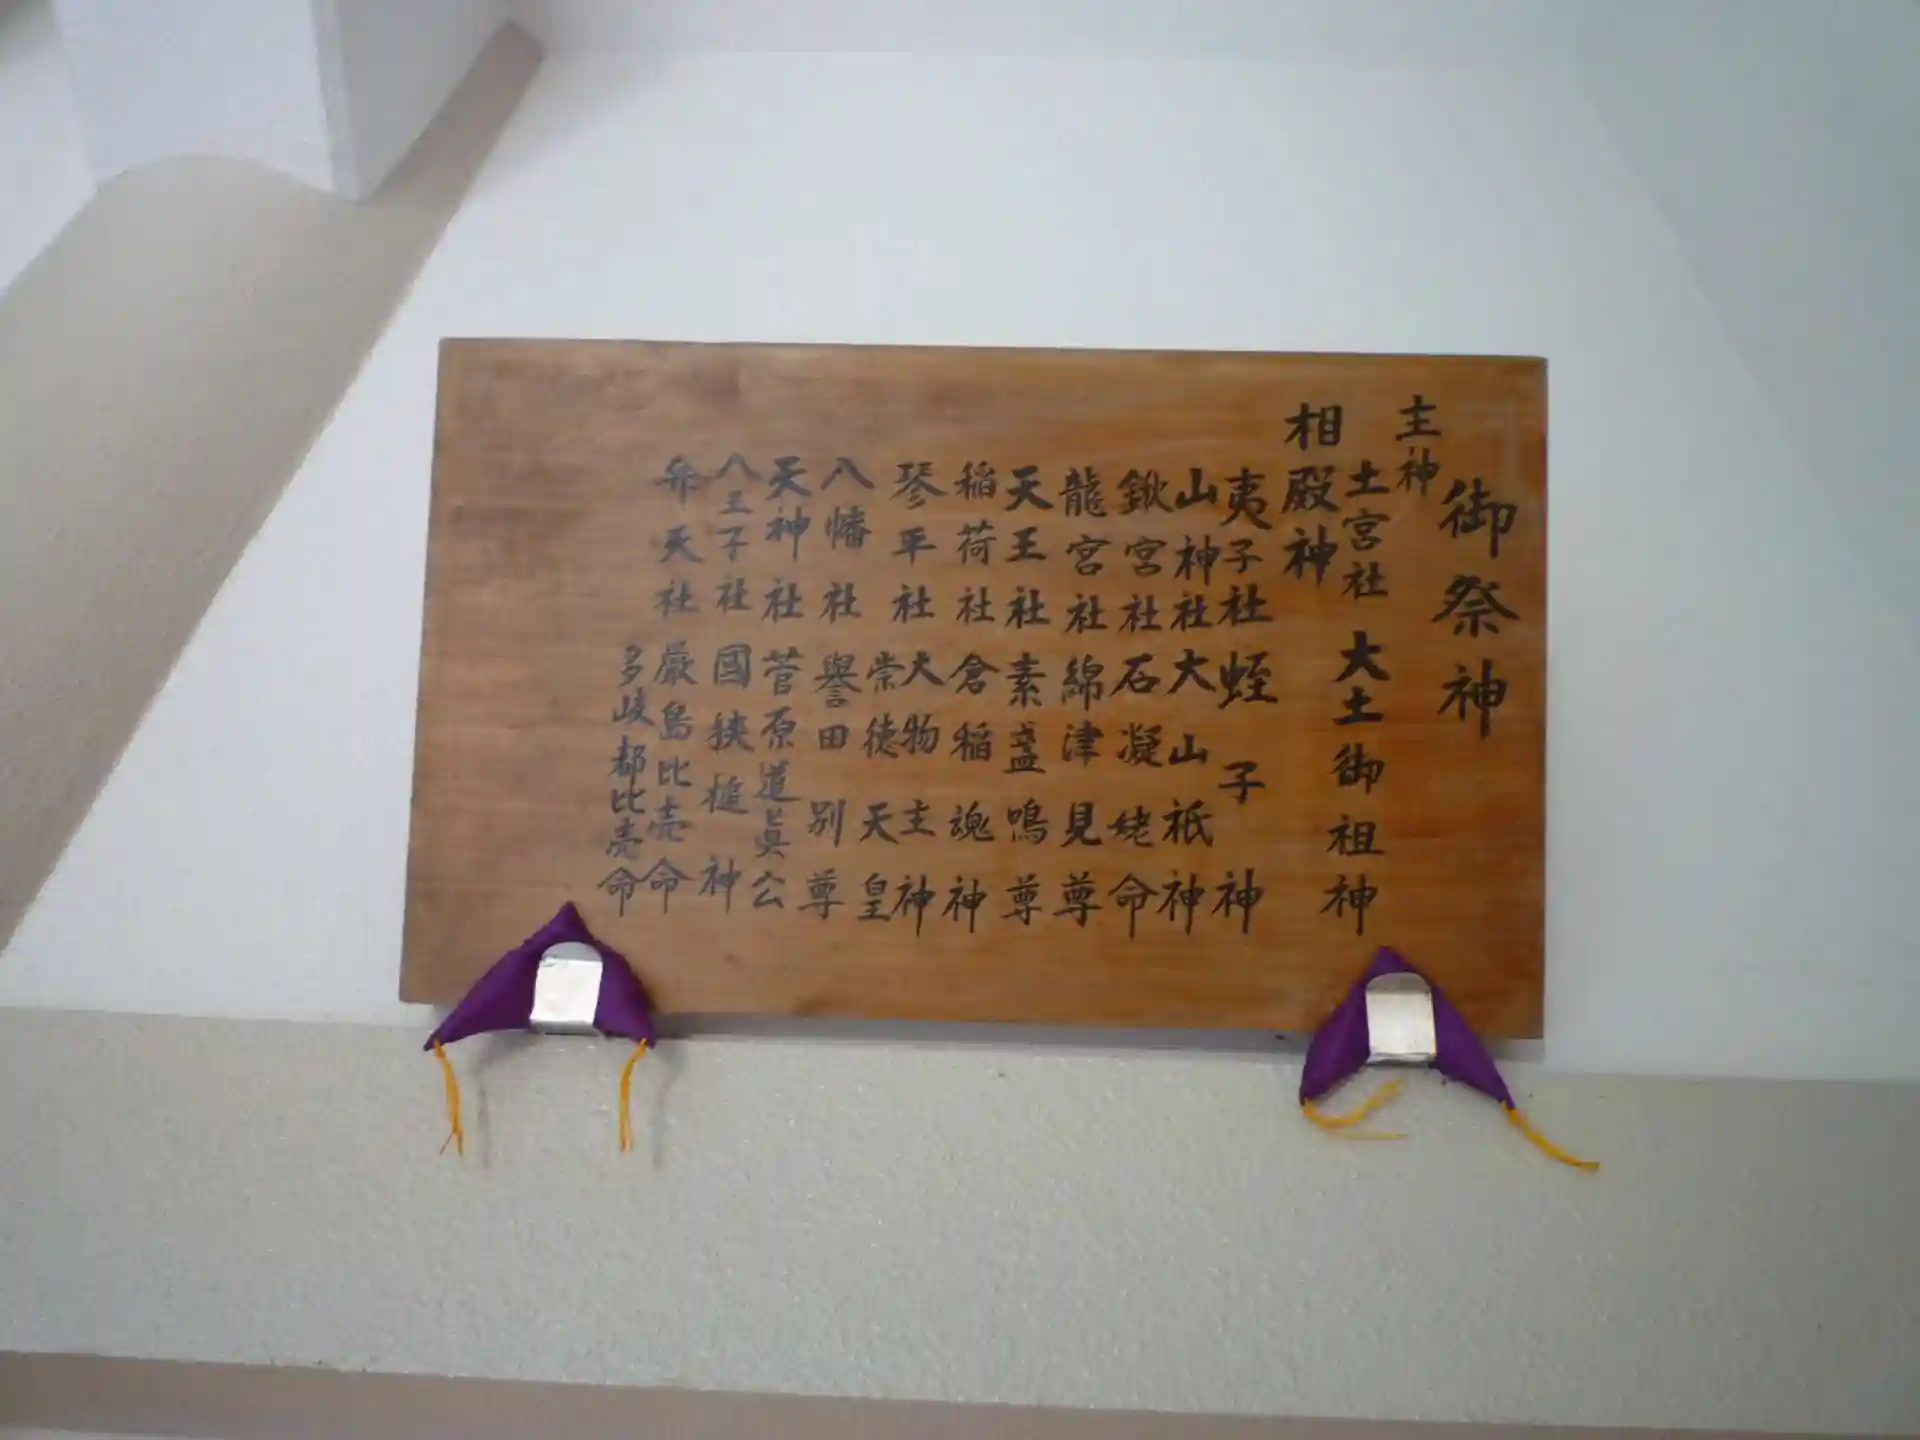 御祭神
主神
土宮社 大土御祖神
相殿神
夷子社 蛭子神
山神社 大山祇神
鍬宮社 石凝姥命
龍宮社 綿津見尊
天王社 素盞鳴尊
稲荷社 倉稲魂神
琴平社 大物主神
崇徳天皇
八幡社 譽田別尊
天神社 菅原道真公
八王子社 國狭槌神
弁天社 厳島比売命
多岐都比売命